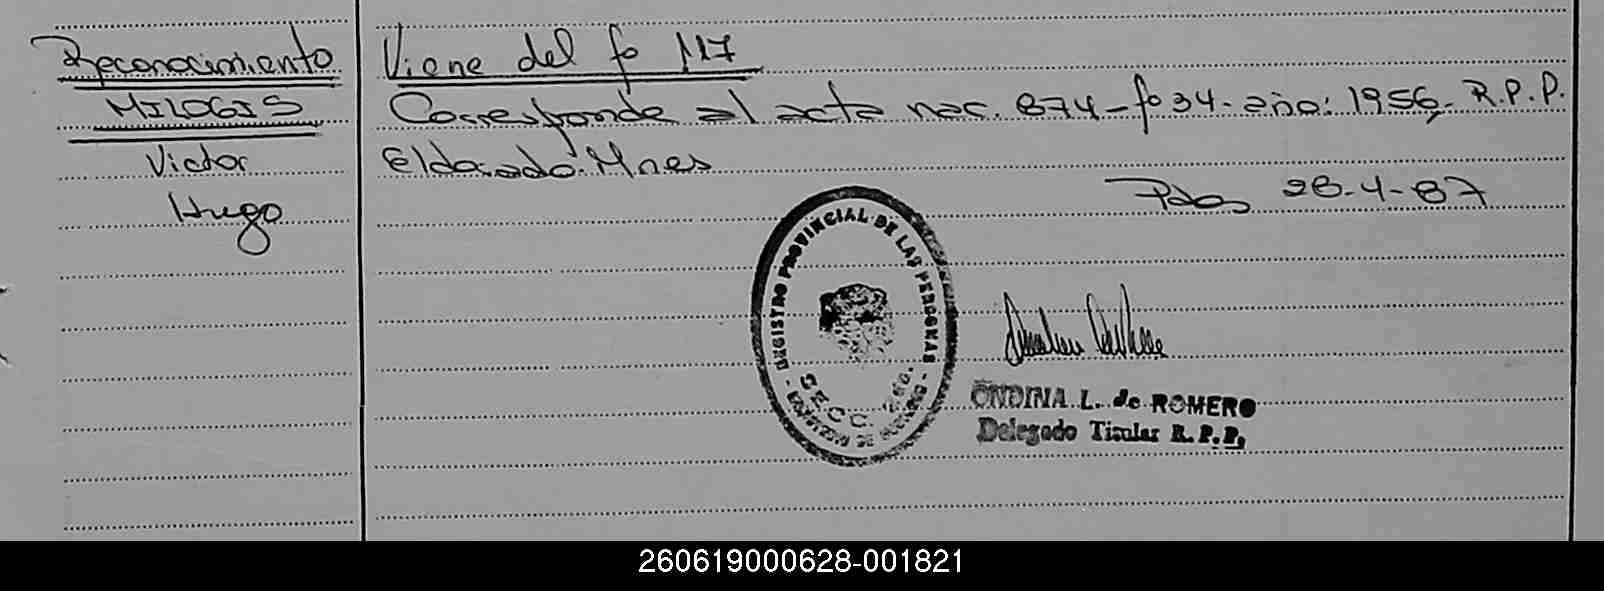 Reconocimiento
MILOGIS
Victor
Hugo
Viene del fo 117
Corresponde al acta nac. 874-fo 34-año: 1956, R.P.P.
Eldorado. Mnes
Pdas 28-4-87
REGISTRO PROVINCIAL DE LAS PERSONAS
SECC.
ONDINA L. de ROMERO
Delegado Titular R.P.P.
260619000628-001821